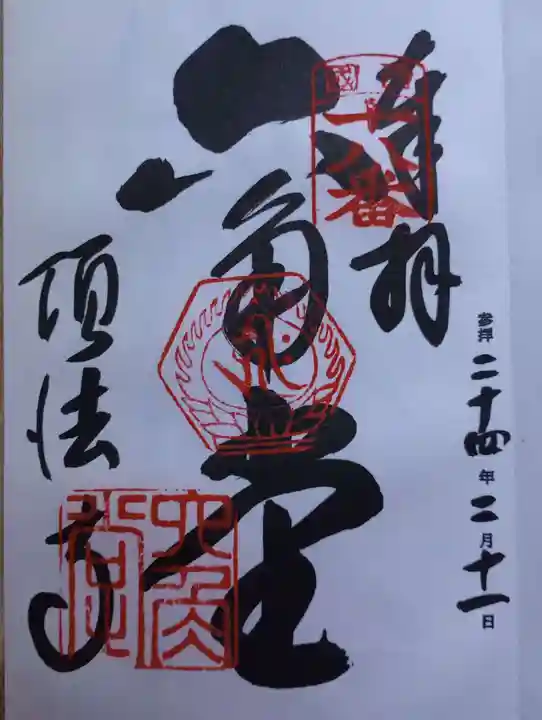 参拝二十四年二月十一日
奉拝
西國十八番
六角堂
六角堂
頂法寺